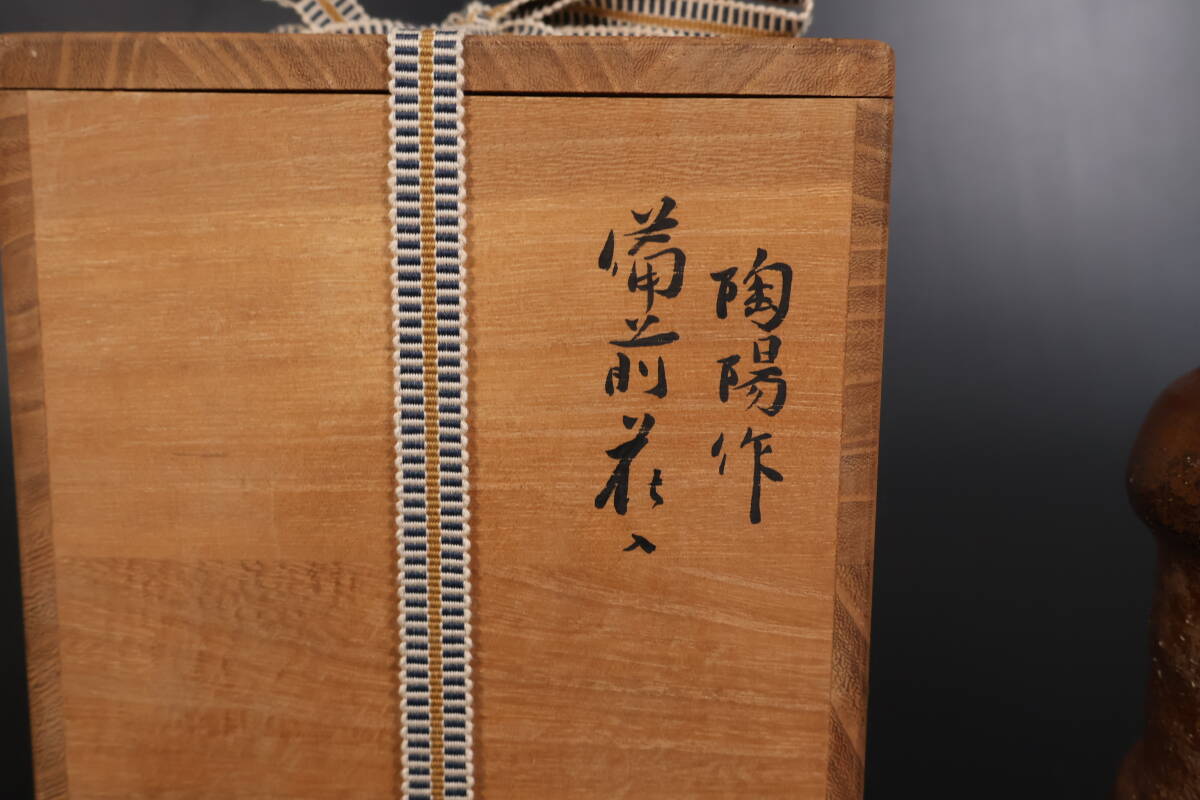 陶陽作
備前花入